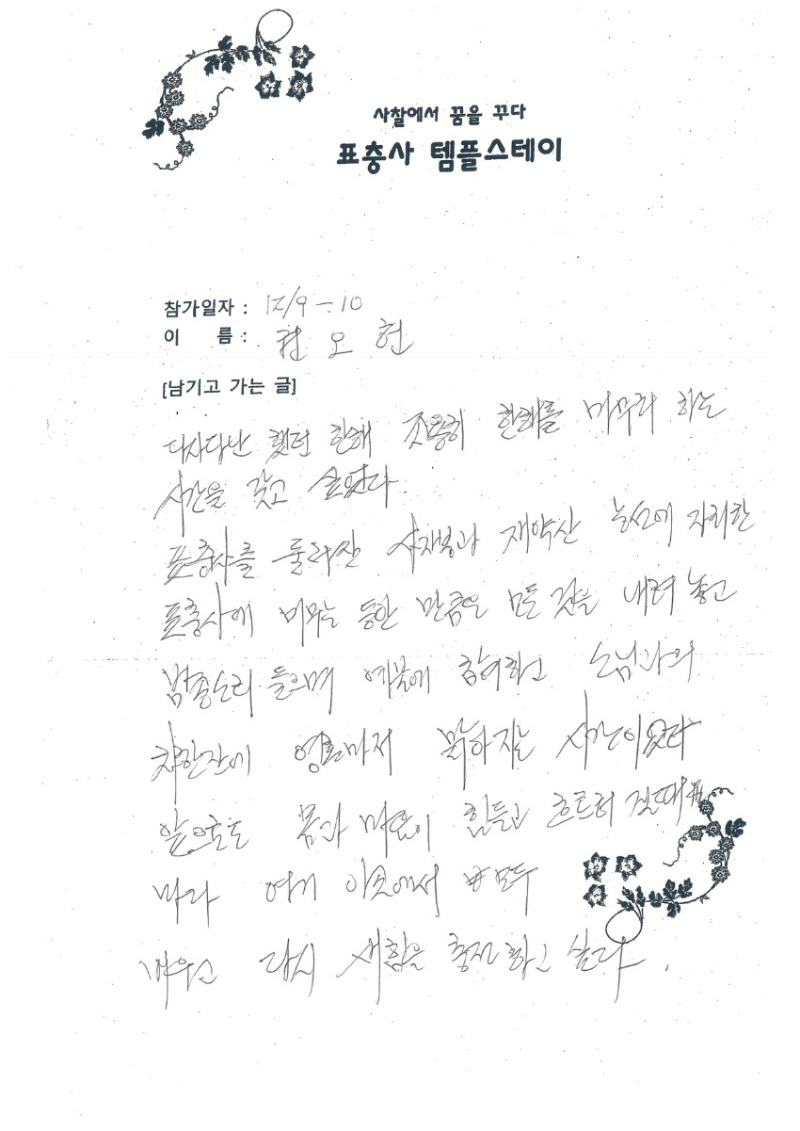 사찰에서 꿈을 꾸다
표충사 템플스테이
참가일자 : 12/9-10
이 름 : 오현
[남기고 가는 글]
다사다난 했던 한해 조용히 한해를 마무리 하는
시간을 갖고 싶었다
표충사를 둘러싼 사자봉과 재약산 능선에 자리한
표충사에 머무는 동안 만큼은 모든 것을 내려 놓고
범종소리 들으며 예불에 참여하고 스님과의
차한잔에 영혼마저 맑아지는 시간이였다
앞으로도 몸과 마음이 힘들고 흐트러 질때
마다 여기 이곳에서 모두
비우고 다시 새힘을 충전 하고 싶다.